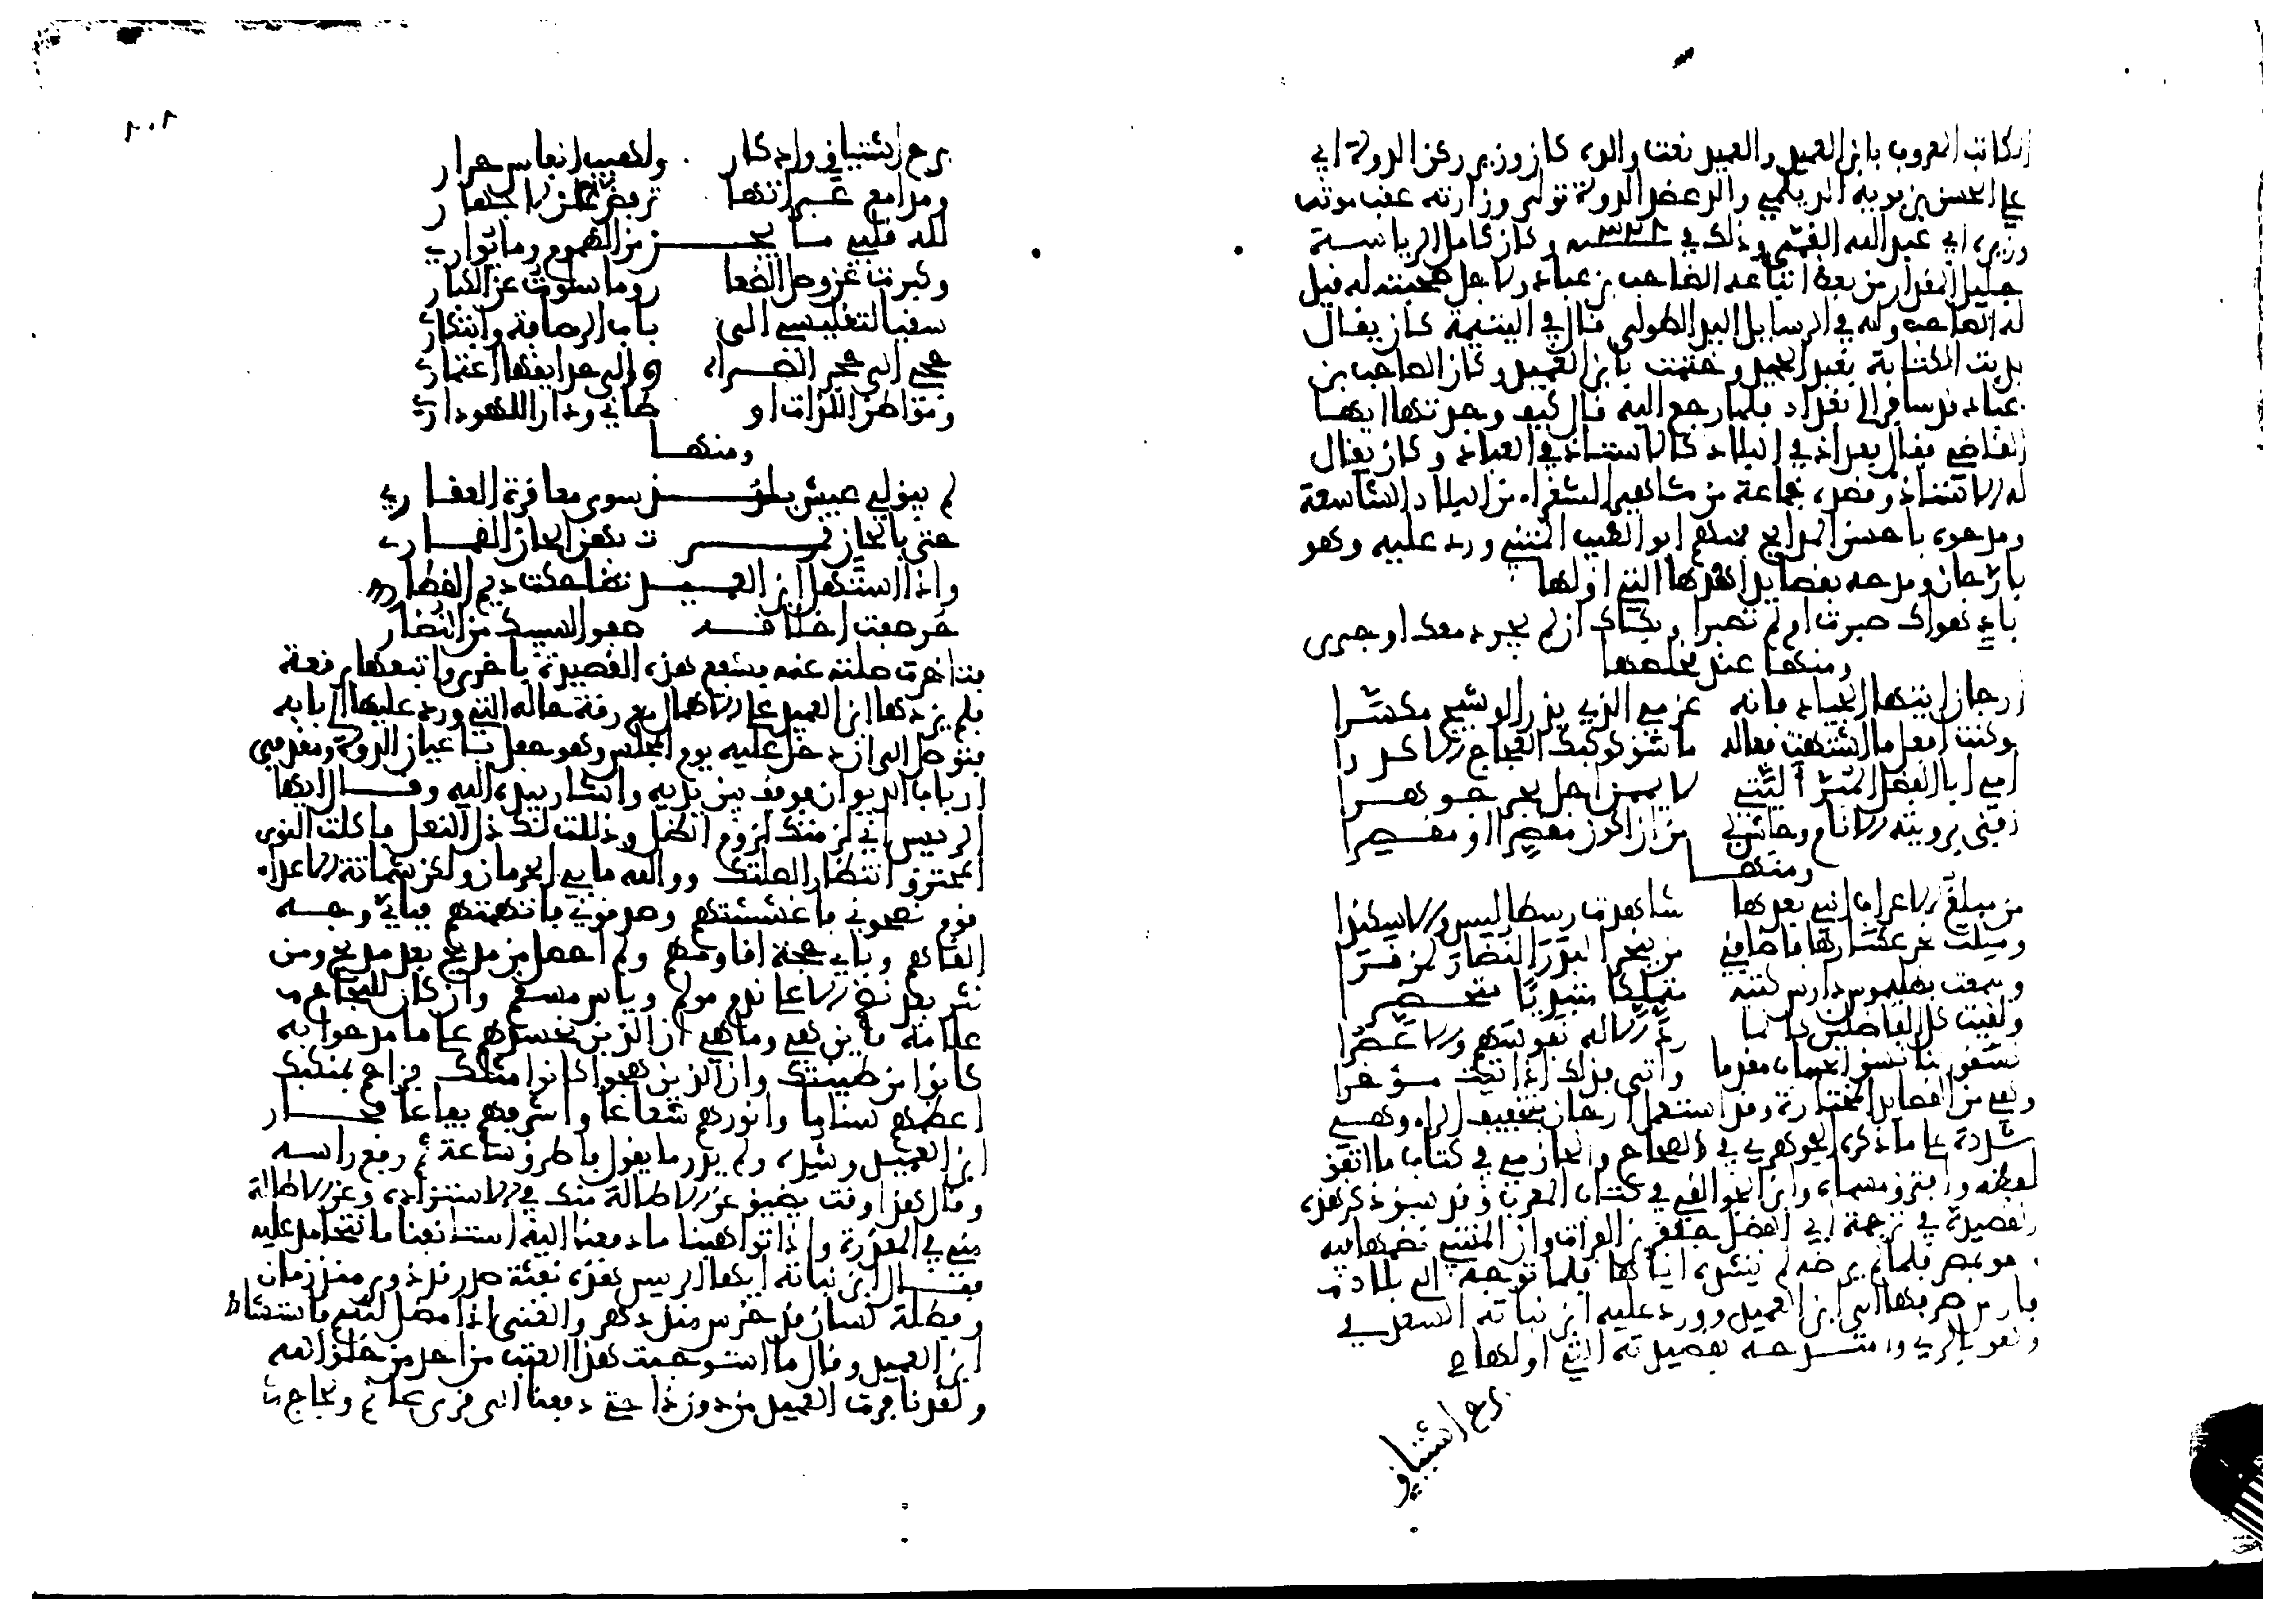 الكاتب المعروب بابن العميد والعميد نعت والده كان وزير ركن الدولة ابي
علي الحسن بن بويه الديلمي والد عضد الدولة تولى وزارته عقب موت
وزيره ابي عبد الله القمي وذلك في سنة وكان كامل الرياسة
جليل المقدار من بعض اتباعه الصاحب بن عباد ولاجل صحبته له فيل
له الصاحب وله في الرسايل اليد الطولى فال في اليتيمة كان يفال
بديت الكتابة بعبد الحميد وختمت بابن العميد وكان الصاحب بن
عباد فد سافر الى بغداد فلما رجع اليه فال كيف وجدتها ايها
القاضي ففال بغداد في البلاد كالاستاذ في العباد وكان يفال
له الاستاذ وفصده جماعة من مشاهير الشعراء من البلاد الشاسعة
ومدحوه باحسن المدايح منهم ابو الطيب المتنبي ورد عليه وهو
بارجان ومدحه بفصايد احدها التي اولها
باد هواك صبرت او لم تصبرا وبكاك ان لم يجر دمعك او جرى
ومنها عند مخلصها
ارجان ايتها الجياد فانه عزمي الذي يذر الوشيج مكسّرا
لو كنت افعل ما اشتهيت فعاله ما شق كوكبك العجاج الاكدرا
امي ابا الفضل المبر اليتي لايممن اجل بحر جوهرا
افتى برويته الانام وحاش لي من ان اكون مفصرا او مفصرا
ومنها
من مبلغ الاعراب اني بعدها شاهدت رسطاليس والاسكندرا
ومللت نحر عشارها فاضافني من ينحر البدر النضار لمن فرا
وسمعت بطليموس دارس كتبه متملكا متبديا متحضرا
ولفيت كل الفاضلين كانما رد الاله نفوسهم والاعصرا
نسفوا لنا نسق الحساب مفدما واتى فذلك اذ اتيت مؤخرا
وهي من الفصايد المختارة وفد استعمل ارجان بتخفيف الراء وهي
مشددة على ما ذكره الجوهري في الصحاح والحازمي في كتاب ما اتفق
لفظه وافترق مسماه وابن الجواليفي في كتاب المعرب وفد سبق ذكر هذه
الفصيدة في ترجمة ابي الفضل جعفر بن الفرات وان المتنبي نظمها فيه
وهو بمصر فلما لم يرضه لم ينشده اياها فلما توجه الى بلاد
فارس صرفها الى ابن العميد وورد عليه ابن نباتة السعدي
وهو بالري وامتدحه بفصيدته التي اولها
برح اشتياف
٢٠٢
برح اشتياف وادكار ولهيب انفاس حرار
ومدامع عبراتها ترفض عن نوم مطار
لله فلبي ما يجن من الهموم وما يواري
وكبرت عن وصل الصغار وما سلوت عن الكبار
سفيا لتغليسي الى باب الرصافة وابتكاري
حجي الى حجر الصراة والى حدايفها اعتماري
ومواطن اللذات اوطاني ودار اللهو داري
ومنها
لم يبق لي عيش يلذ سوى معافرة العفار
حتى بالحان فرنت بهن الحان الفماري
واذا استهل ابن العميد تضاحكت ديم الفطار
خرق صفت اخلافه صفو السبيك من النضار
فتاخرت صلته عنه فشفع هذه الفصيدة باخرى واتبعها برفعة
فلم يزده ابن العميد على الاهمال مع رفة حاله التي ورد عليها الى بابه
فتوصل الى ان دخل عليه يوم المجلس وهو حفل باعيان الدولة ومفدمي
ارباب الديوان فوقف بين يديه واشار بيده اليه وفال ايها
الرييس اني لزمتك لزوم الظل وذللت لك ذل النعل واكلت النوى
المحترق انتظارا لصلتك ووالله ما بي الحرمان ولكن شماتة الاعداء
فوم نصحوني فاغششتهم وصدفوني فاتهمتهم فباي وجه
الفاهم وباي حجة افاومهم ولم احصل من مديح بعد مديح ومن
نثر بعد نظم الا على ندم مولم وياس مسفم وان كان للنجاح
علامة فاين هي وما هي ان الذين تحسدهم على ما مدحوا به
كانوا من طينتك وان الذين هجوا كانوا مثلك فزاحم بمنكبك
اعظمهم سناما وانورهم شعاعا واشرفهم بفاعا فحار
ابن العميد وشده ولم يدر ما يفول فاطرق ساعة ثم رفع راسه
وفال هذا وفت يضيق عن الاطالة منك في الاستزادة وعن الاطالة
مني في المعذرة واذا تواهبنا ما دفعنا اليه استانفنا ما نتحامد عليه
ففال ابن نباتة ايها الرييس هذه نفثة صدر فد دوي منذ زمان
وفضلة لسان فد خرس منذ دهر والغني اذا مطل لئيم فاستشاط
ابن العميد وفال ما استوجبت هذا العتب من احد من خلق الله
ولفد نافرت العميد من دون ذا حتى دفعنا الى فرى عاتم ولجاج